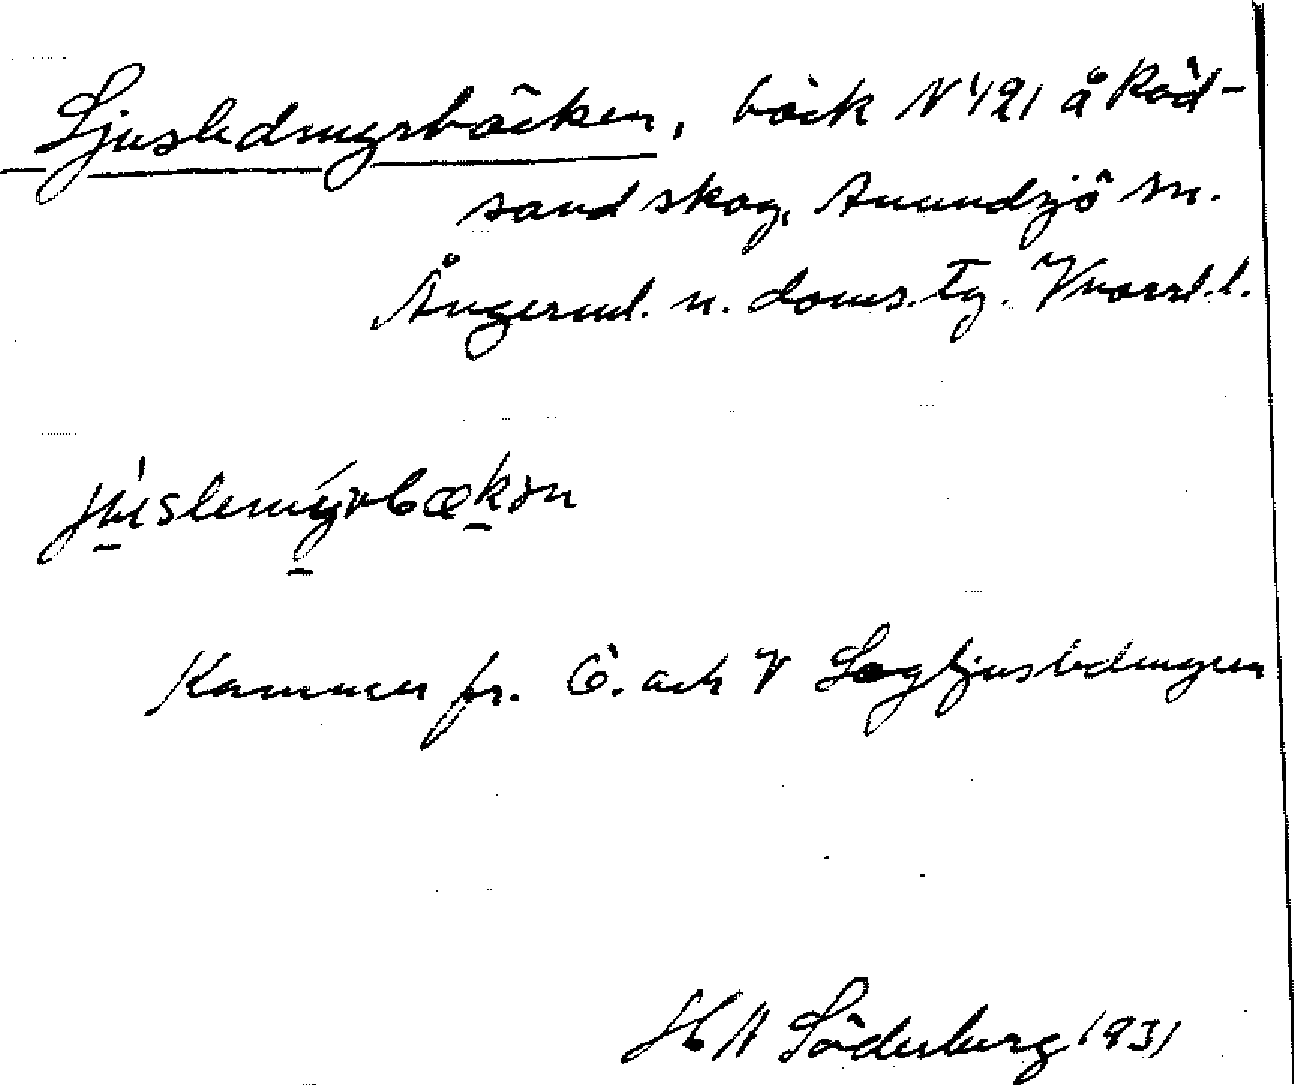 Ljusledmyrbäcken, bäck N 421 å Röd-
sand skog, Anundsjö sn.
Ångerml. n. doms. tg. Vnorrl. l.
Kommer fr. Ö. och V Logljusledmyren
H N Söderberg 1931